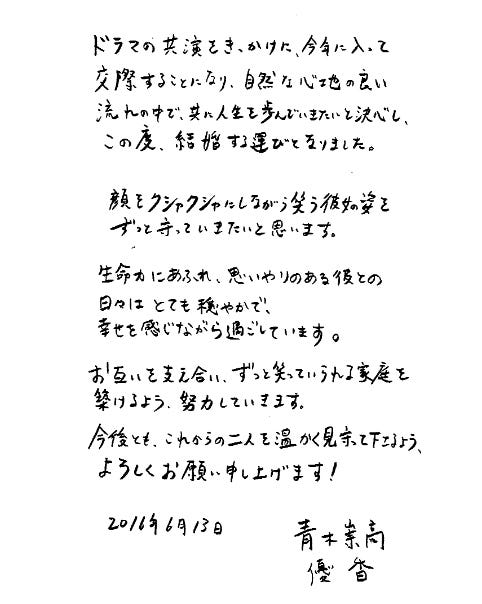 ドラマの共演をきっかけに、今年に入って
交際することになり、自然な心地の良い
流れの中で、共に人生を歩んでいきたいと決心し、
この度、結婚する運びとなりました。
顔をクシャクシャにしながら笑う彼女の姿を
ずっと守っていきたいと思います。
生命力にあふれ、思いやりのある彼との
日々はとても穏やかで、
幸せを感じながら過ごしています。
お互いを支え合い、ずっと笑っていられる家庭を
築けるよう、努力していきます。
今後とも、これからの二人を温かく見守って下さるよう、
よろしくお願い申し上げます!
2016年6月13日
青木崇高
優香